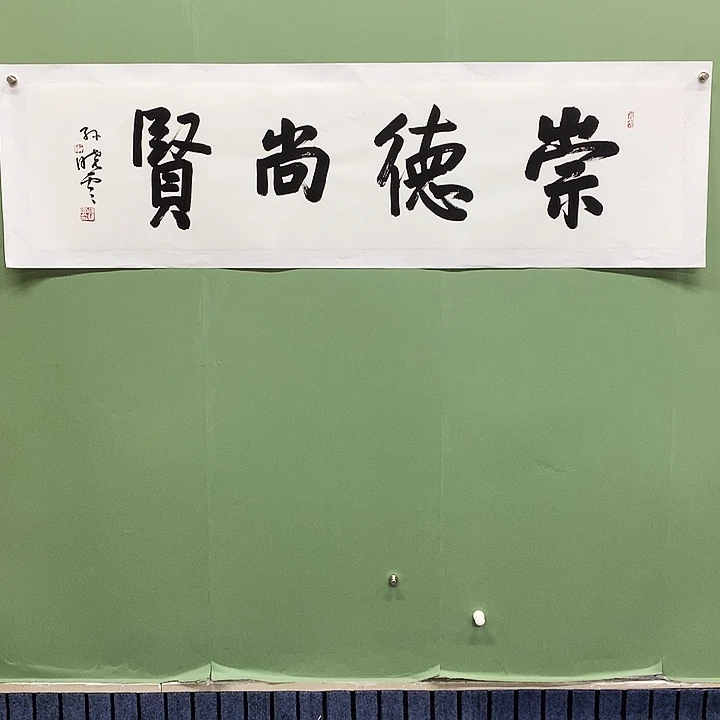 崇德尚賢
孙晓云